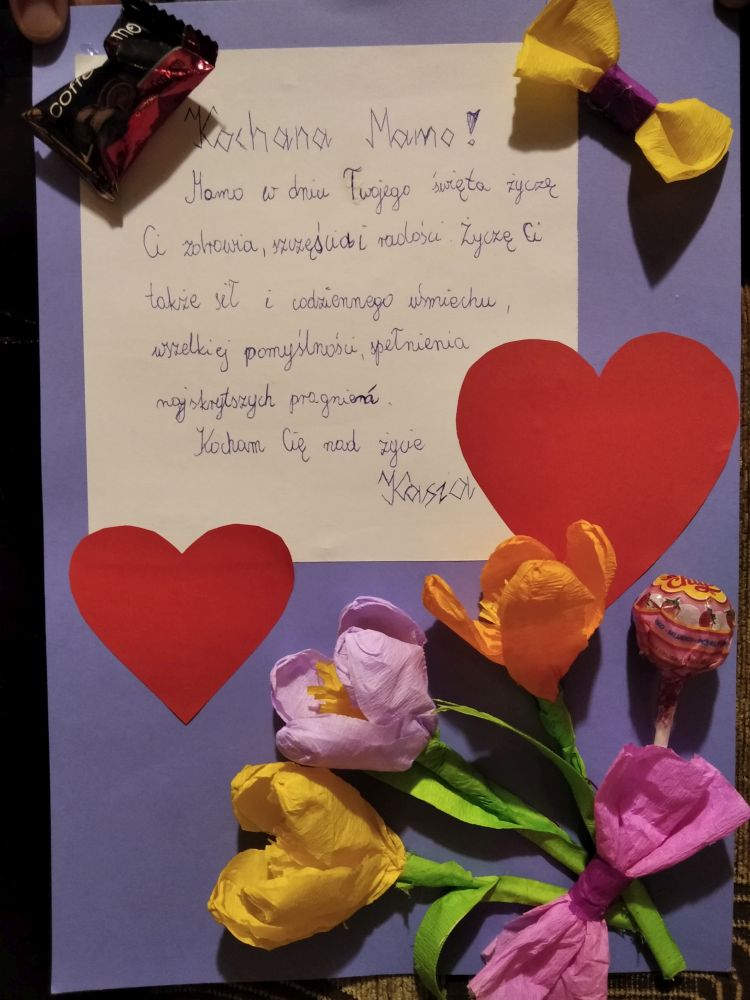 Kochana Mamo!
Mamo w dniu Twojego święta życzę
Ci zdrowia, szczęścia i radości. Życzę Ci
także sił i codziennego uśmiechu,
wszelkiej pomyślności, spełnienia
najskrytszych pragnień.
Kocham Cię nad życie
Kasia